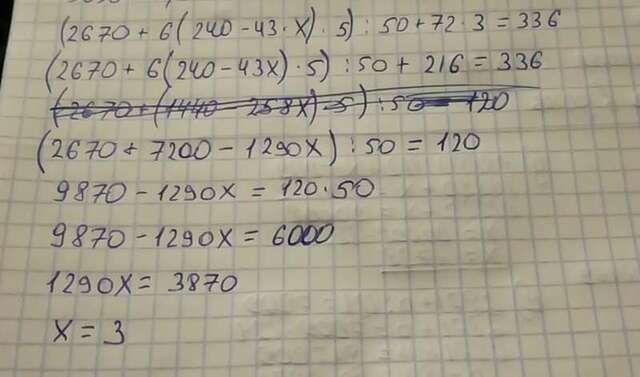 (2670 + 6(240 - 43·X)·5) : 50 + 72·3 = 336
(2670 + 6(240 - 43X)·5) : 50 + 216 = 336
(2670 + (1440 - 258X)·5) : 50 = 120
(2670 + 7200 - 1290X) : 50 = 120
9870 - 1290X = 120·50
9870 - 1290X = 6000
1290X = 3870
X = 3